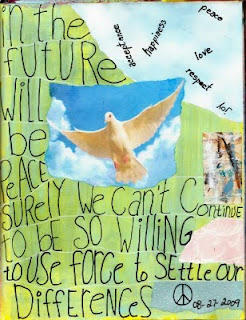 in the
future
will
be
PEACE
SURELY WE CAN'T CONTINUE
TO BE SO WILLING
to use force to settle our
DIFFERENCES
peace
acceptance
happiness
love
respect
for
08-27-2009